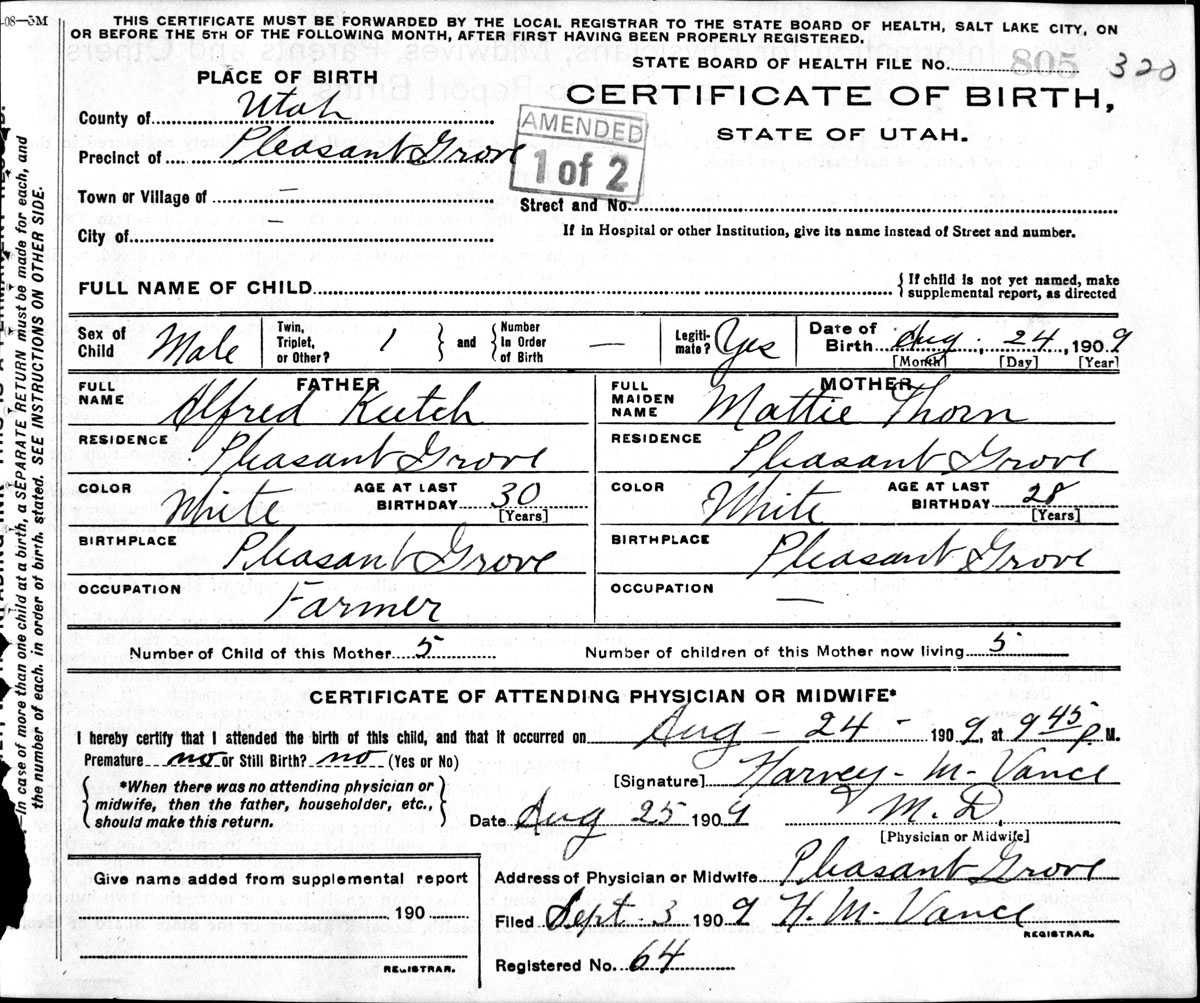 -08—3M
THIS CERTIFICATE MUST BE FORWARDED BY THE LOCAL REGISTRAR TO THE STATE BOARD OF HEALTH, SALT LAKE CITY, ON
OR BEFORE THE 5TH OF THE FOLLOWING MONTH, AFTER FIRST HAVING BEEN PROPERLY REGISTERED.
STATE BOARD OF HEALTH FILE No. 805 320
PLACE OF BIRTH
CERTIFICATE OF BIRTH,
STATE OF UTAH.
AMENDED
1 of 2
County of Utah
Precinct of Pleasant Grove
Town or Village of –
Street and No.
City of –
If in Hospital or other Institution, give its name instead of Street and number.
FULL NAME OF CHILD
{ If child is not yet named, make
supplemental report, as directed
Sex of Child Male
Twin, Triplet, or Other? 1 } and { Number In Order of Birth —
Legiti-mate? Yes
Date of Birth Aug. 24, 1909
[Month] [Day] [Year]
FATHER
FULL NAME Alfred Keetch
MOTHER
FULL MAIDEN NAME Mattie Thorn
RESIDENCE Pleasant Grove
RESIDENCE Pleasant Grove
COLOR White AGE AT LAST BIRTHDAY 30 [Years]
COLOR White AGE AT LAST BIRTHDAY 28 [Years]
BIRTHPLACE Pleasant Grove
BIRTHPLACE Pleasant Grove
OCCUPATION Farmer
OCCUPATION —
Number of Child of this Mother 5
Number of children of this Mother now living 5
CERTIFICATE OF ATTENDING PHYSICIAN OR MIDWIFE*
I hereby certify that I attended the birth of this child, and that it occurred on Aug – 24 – 1909, at 9 45 P M.
Premature no or Still Birth? no (Yes or No)
[Signature] Harvey - M - Vance
{ *When there was no attending physician or
midwife, then the father, householder, etc.,
should make this return. }
Date Aug 25 1909
M. D.
[Physician or Midwife]
Address of Physician or Midwife Pleasant Grove
Give name added from supplemental report
190
REGISTRAR.
Filed Sept. 3, 1909 H. M. Vance
REGISTRAR.
Registered No. 64
—In case of more than one child at a birth, a SEPARATE RETURN must be made for each, and
the number of each, in order of birth, stated. SEE INSTRUCTIONS ON OTHER SIDE.